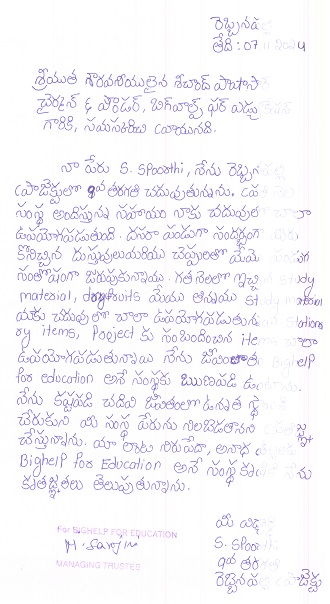 రెబ్బనపల్లి
తేది : 07
శ్రీయుత గౌరవనీయులైన శిచాంద్ పాషా
ఛైర్మన్ & ఫౌండర్, బిగ్‌హెల్ప్ ఫర్ ఎడ్యు
గారికి, నమస్కరించి వ్రాయునది.
నా పేరు S. Spoorthi, నేను రెబ్బన
ప్రాజెక్టులో 9వ తరగతి చదువుతున్నాను.
సంస్థ అందిస్తున్న సహాయం నాకు చదువులో చాలా
ఉపయోగపడుతుంది. దసరా పండుగ సందర్భంగా
దుస్తువులు మరియు చెప్పులతో మేము పండుగ
సంతోషంగా జరుపుకున్నాము. గత నెలలో ఇచ్చిన study
material, dryfruits మేము తిన్నాము study material
మాకు చదువులో చాలా ఉపయోగపడుతున్న stationa
ry items, Project కు సంబంధించిన items చాలా
ఉపయోగపడుతున్నాయి నేను జీవితాంతం Bighelp
for education అనే సంస్థకు ఋణపడి
నేను కష్టపడి చదివి జీవితంలో ఉన్నత
చేరుకుని మీ సంస్థ పేరును నిలబెడతానని
చేస్తున్నాను. మా లాంటి నిరుపేద, అనాధ
Bighelp for Education అనే సంస్థకు నేను
కృతజ్ఞతలు తెలుపుతున్నాను.
మీ
S. Spoorthi
9వ తరగతి
రెబ్బనపల్లి ప్రాజెక్టు
For BIGHELP FOR EDUCATION
M. Sarojina
MANAGING TRUSTEE